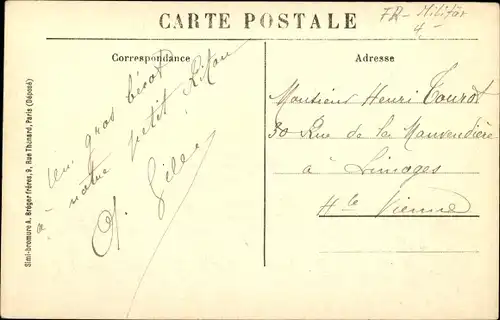 CARTE POSTALE
FR - Militär
4 -
Correspondance
Adresse
Un gros bésot
à notre petit
A. Gille
Monsieur Henri Tourot
30 Rue de la Mauvendière
à Limoges
Hte Vienne
Simi-bromure A. Breger frères, 9, Rue Thénard, Paris (Déposé)